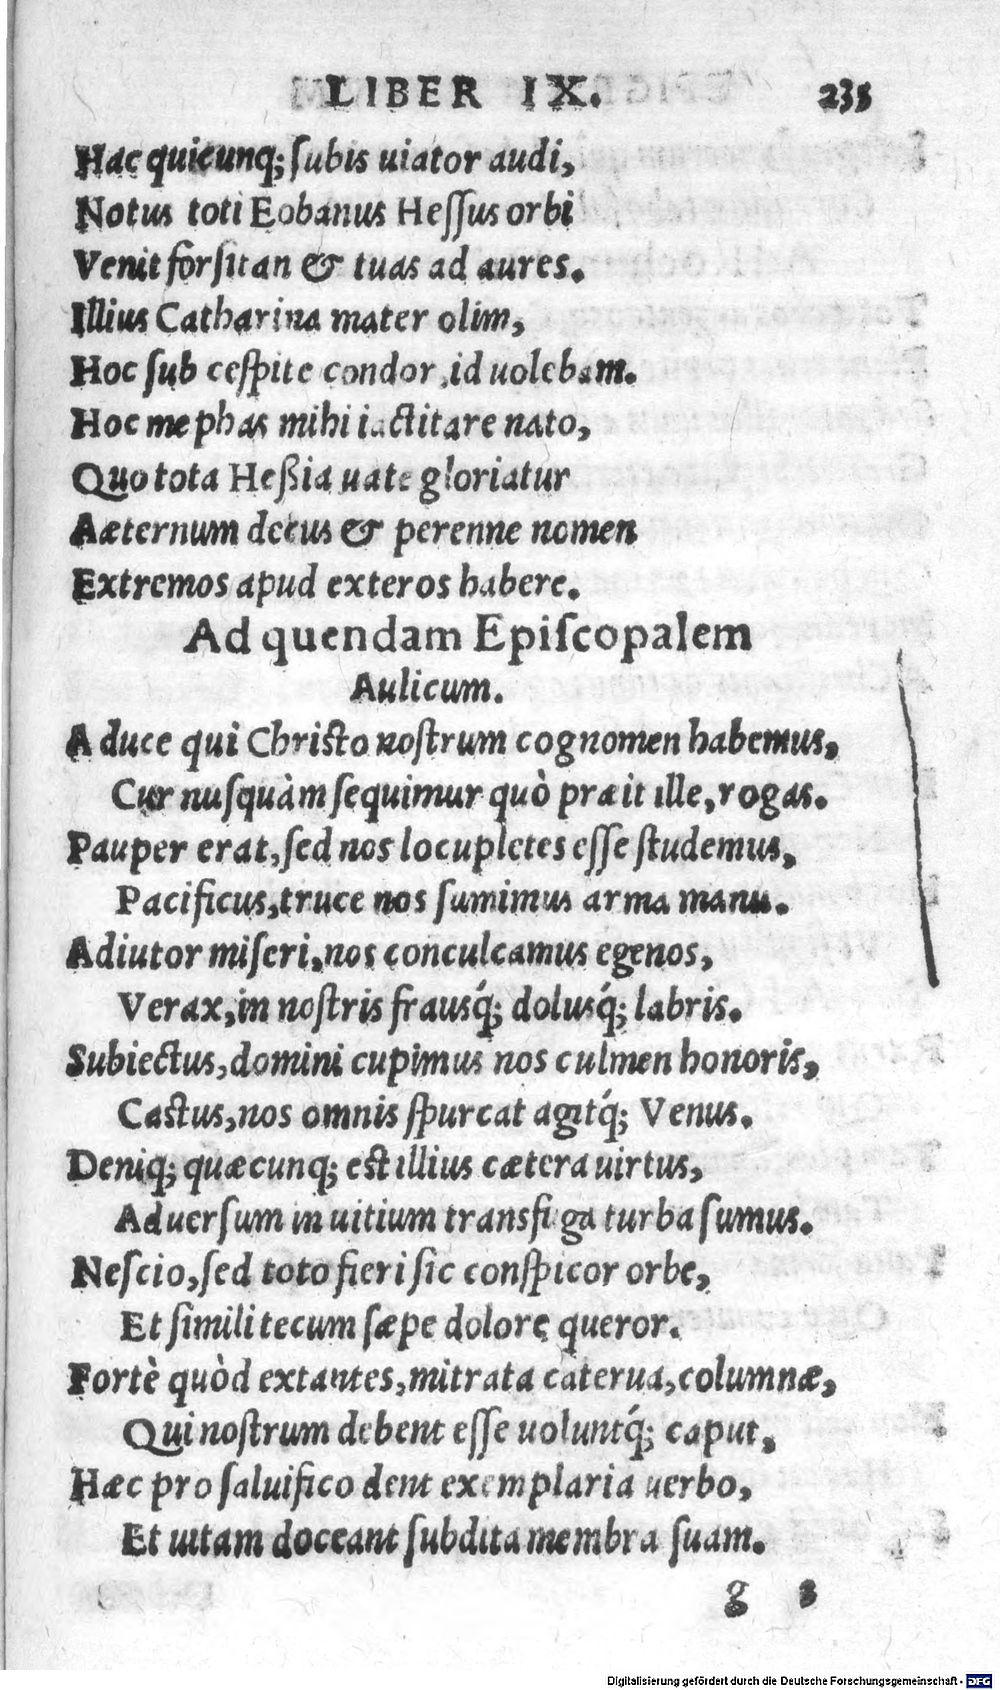 LIBER IX. 235
Hac quicunq; ſubis uiator audi,
Notus toti Eobanus Heſſus orbi
Venit forſitan & tuas ad aures.
Illius Catharina mater olim,
Hoc ſub ceſpite condor, id uolebam.
Hoc me phas mihi iactitare nato,
Quo tota Heßia uate gloriatur
Aæternum decus & perenne nomen
Extremos apud exteros habere.
Ad quendam Epiſcopalem
Aulicum.
A duce qui Chriſto noſtrum cognomen habemus,
Cur nuſquàm ſequimur quò præit ille, rogas.
Pauper erat, ſed nos locupletes eſſe ſtudemus,
Pacificus, truce nos ſumimus arma manu.
Adiutor miſeri, nos conculcamus egenos,
Verax, in noſtris frausq́; dolusq́; labris.
Subiectus, domini cupimus nos culmen honoris,
Caſtus, nos omnis ſpurcat agitq́; Venus.
Deniq; quæcunq; eſt illius cætera uirtus,
Aduerſum in uitium transfuga turba ſumus.
Neſcio, ſed toto fieri ſic conſpicor orbe,
Et ſimili tecum ſæpe dolore queror.
Fortè quòd extantes, mitrata caterua, columnæ,
Qui noſtrum debent eſſe uoluntq́; caput,
Hæc pro ſaluifico dent exemplaria uerbo,
Et uitam doceant ſubdita membra ſuam.
g 3
Digitalisierung gefördert durch die Deutsche Forschungsgemeinschaft - DFG